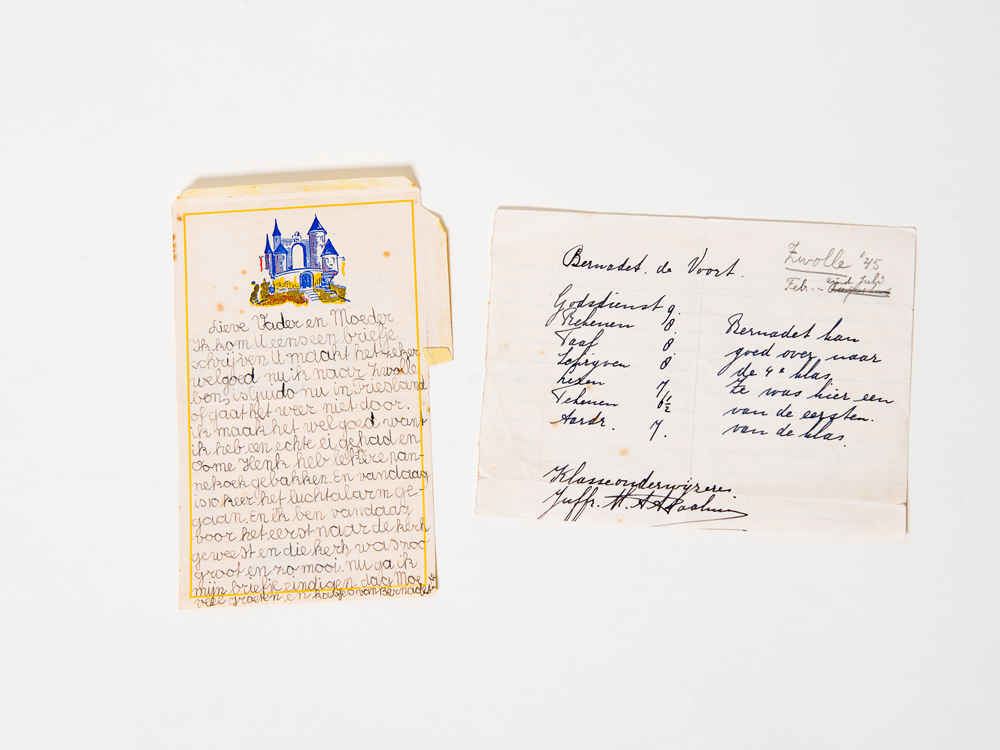 Lieve Vader en Moeder
Ik kom U eens een briefje
schrijven U maakt het zeker
wel goed nu ik naar Zwolle
ben is Guido nu in Friesland
of gaat het weer niet door.
ik maak het wel goed want
ik heb een echte ei gehad en
Oome Henk heb lekkere pan-
nekoek gebakken. En vandaag
is 10 keer het luchtalarm ge-
gaan. En ik ben vandaag
voor het eerst naar de kerk
geweest en die kerk was zoo
groot en zo mooi. nu ga ik
mijn briefje eindigen dag Moe
veel groeten en kusjes van Bernadet
Bernadet. de Voort.
Zwolle '45
Feb. - eind Juli
Godsdienst 9.
Rekenen 8
Taal 8
Schrijven 8
Lezen 7
Tekenen 6½
Aardr. 7.
Bernadet kan
goed over naar
de 4e klas
Ze was hier een
van de eersten.
van de klas.
Klasseonderwijzeres
Juffr. M. A.